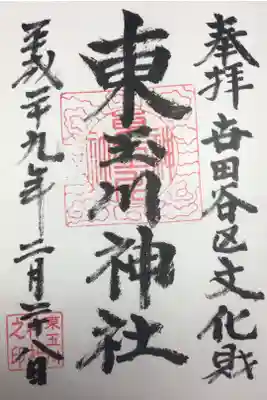 奉拝 世田谷区文化財
東玉川神社
平成二十九年二月二十八日